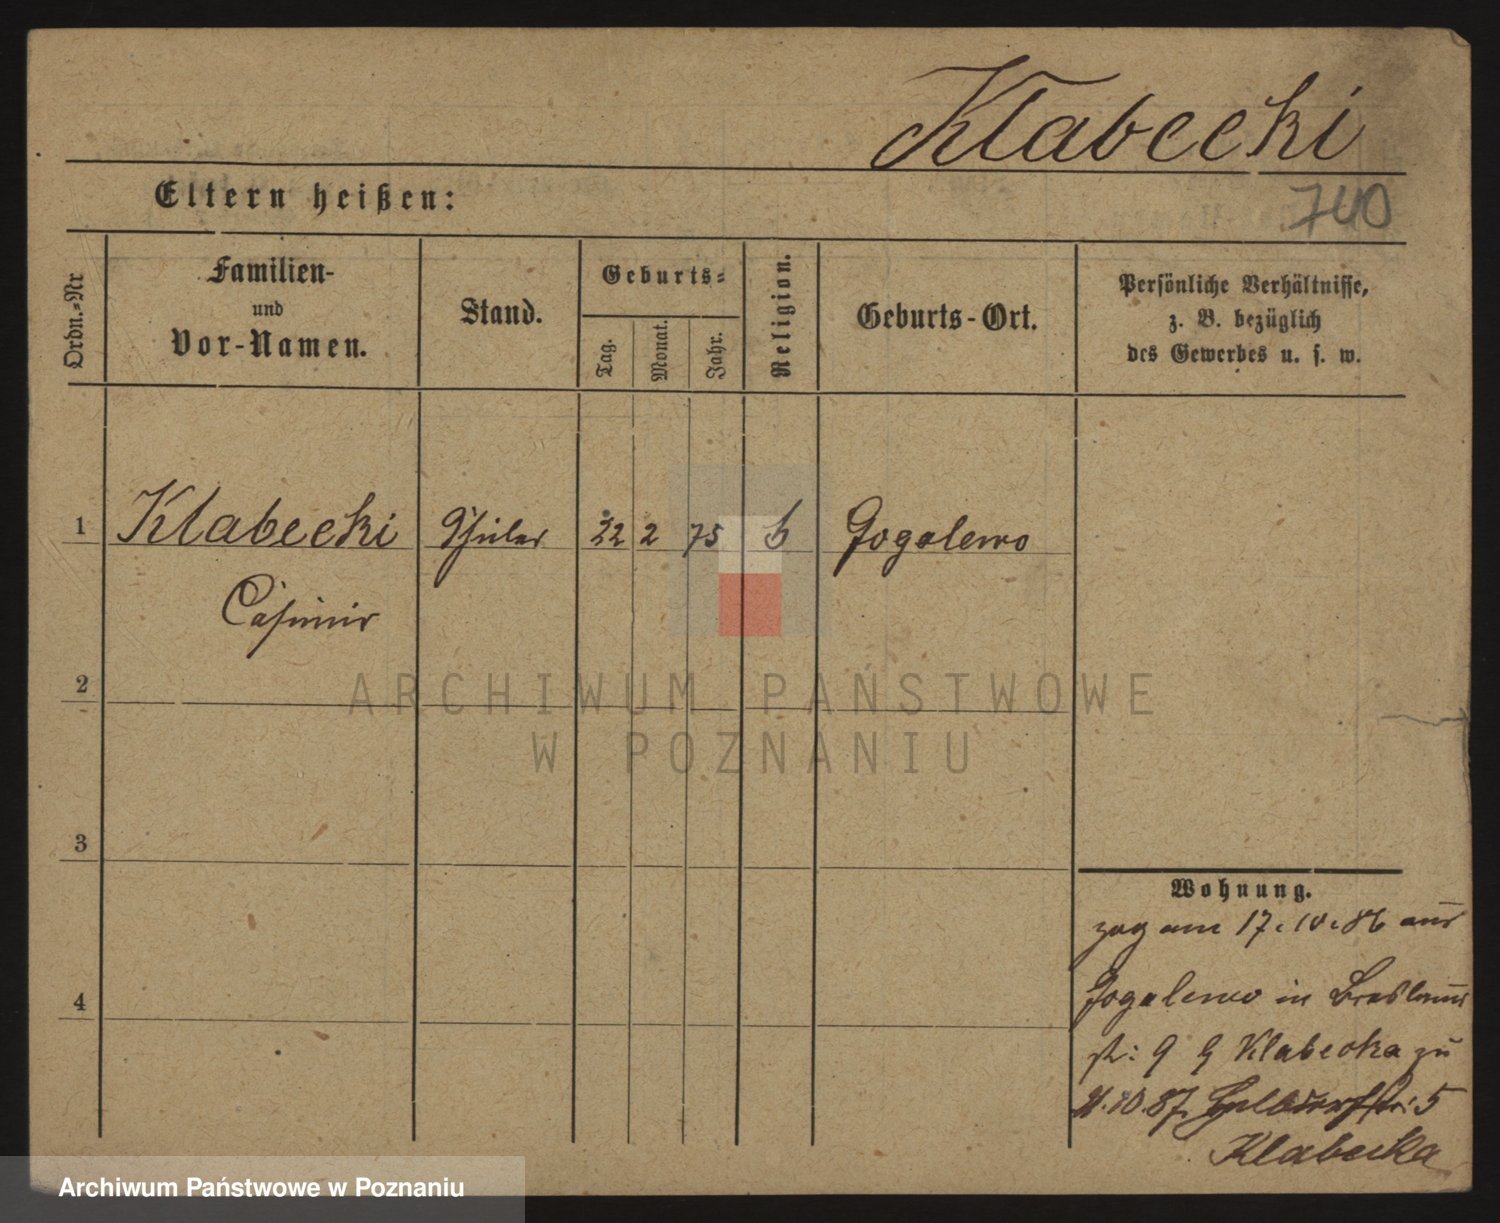 Klabecki
Eltern heißen:
740
Ordn.-Nr
Familien-
und
Vor-Namen.
Stand.
Geburts-
Tag.
Monat.
Jahr.
Religion.
Geburts-Ort.
Persönliche Verhältnisse,
z. B. bezüglich
des Gewerbes u. s. w.
1 Klabecki Schüler 22 2 75 k Gogolewo
Casimir
2
3
4
Wohnung.
zog am 17.10.86 aus
Gogolewo in Breslauer
str: 9 b Klabecka zu
10.87 5
Klabecka
ARCHIWUM PAŃSTWOWE
W POZNANIU
Archiwum Państwowe w Poznaniu